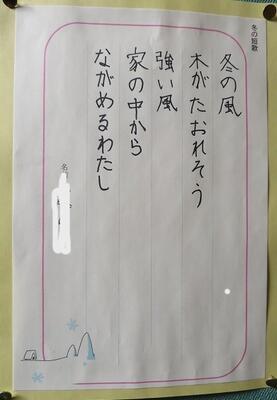 冬の短歌
冬の風
木がたおれそう
強い風
家の中から
ながめるわたし
名